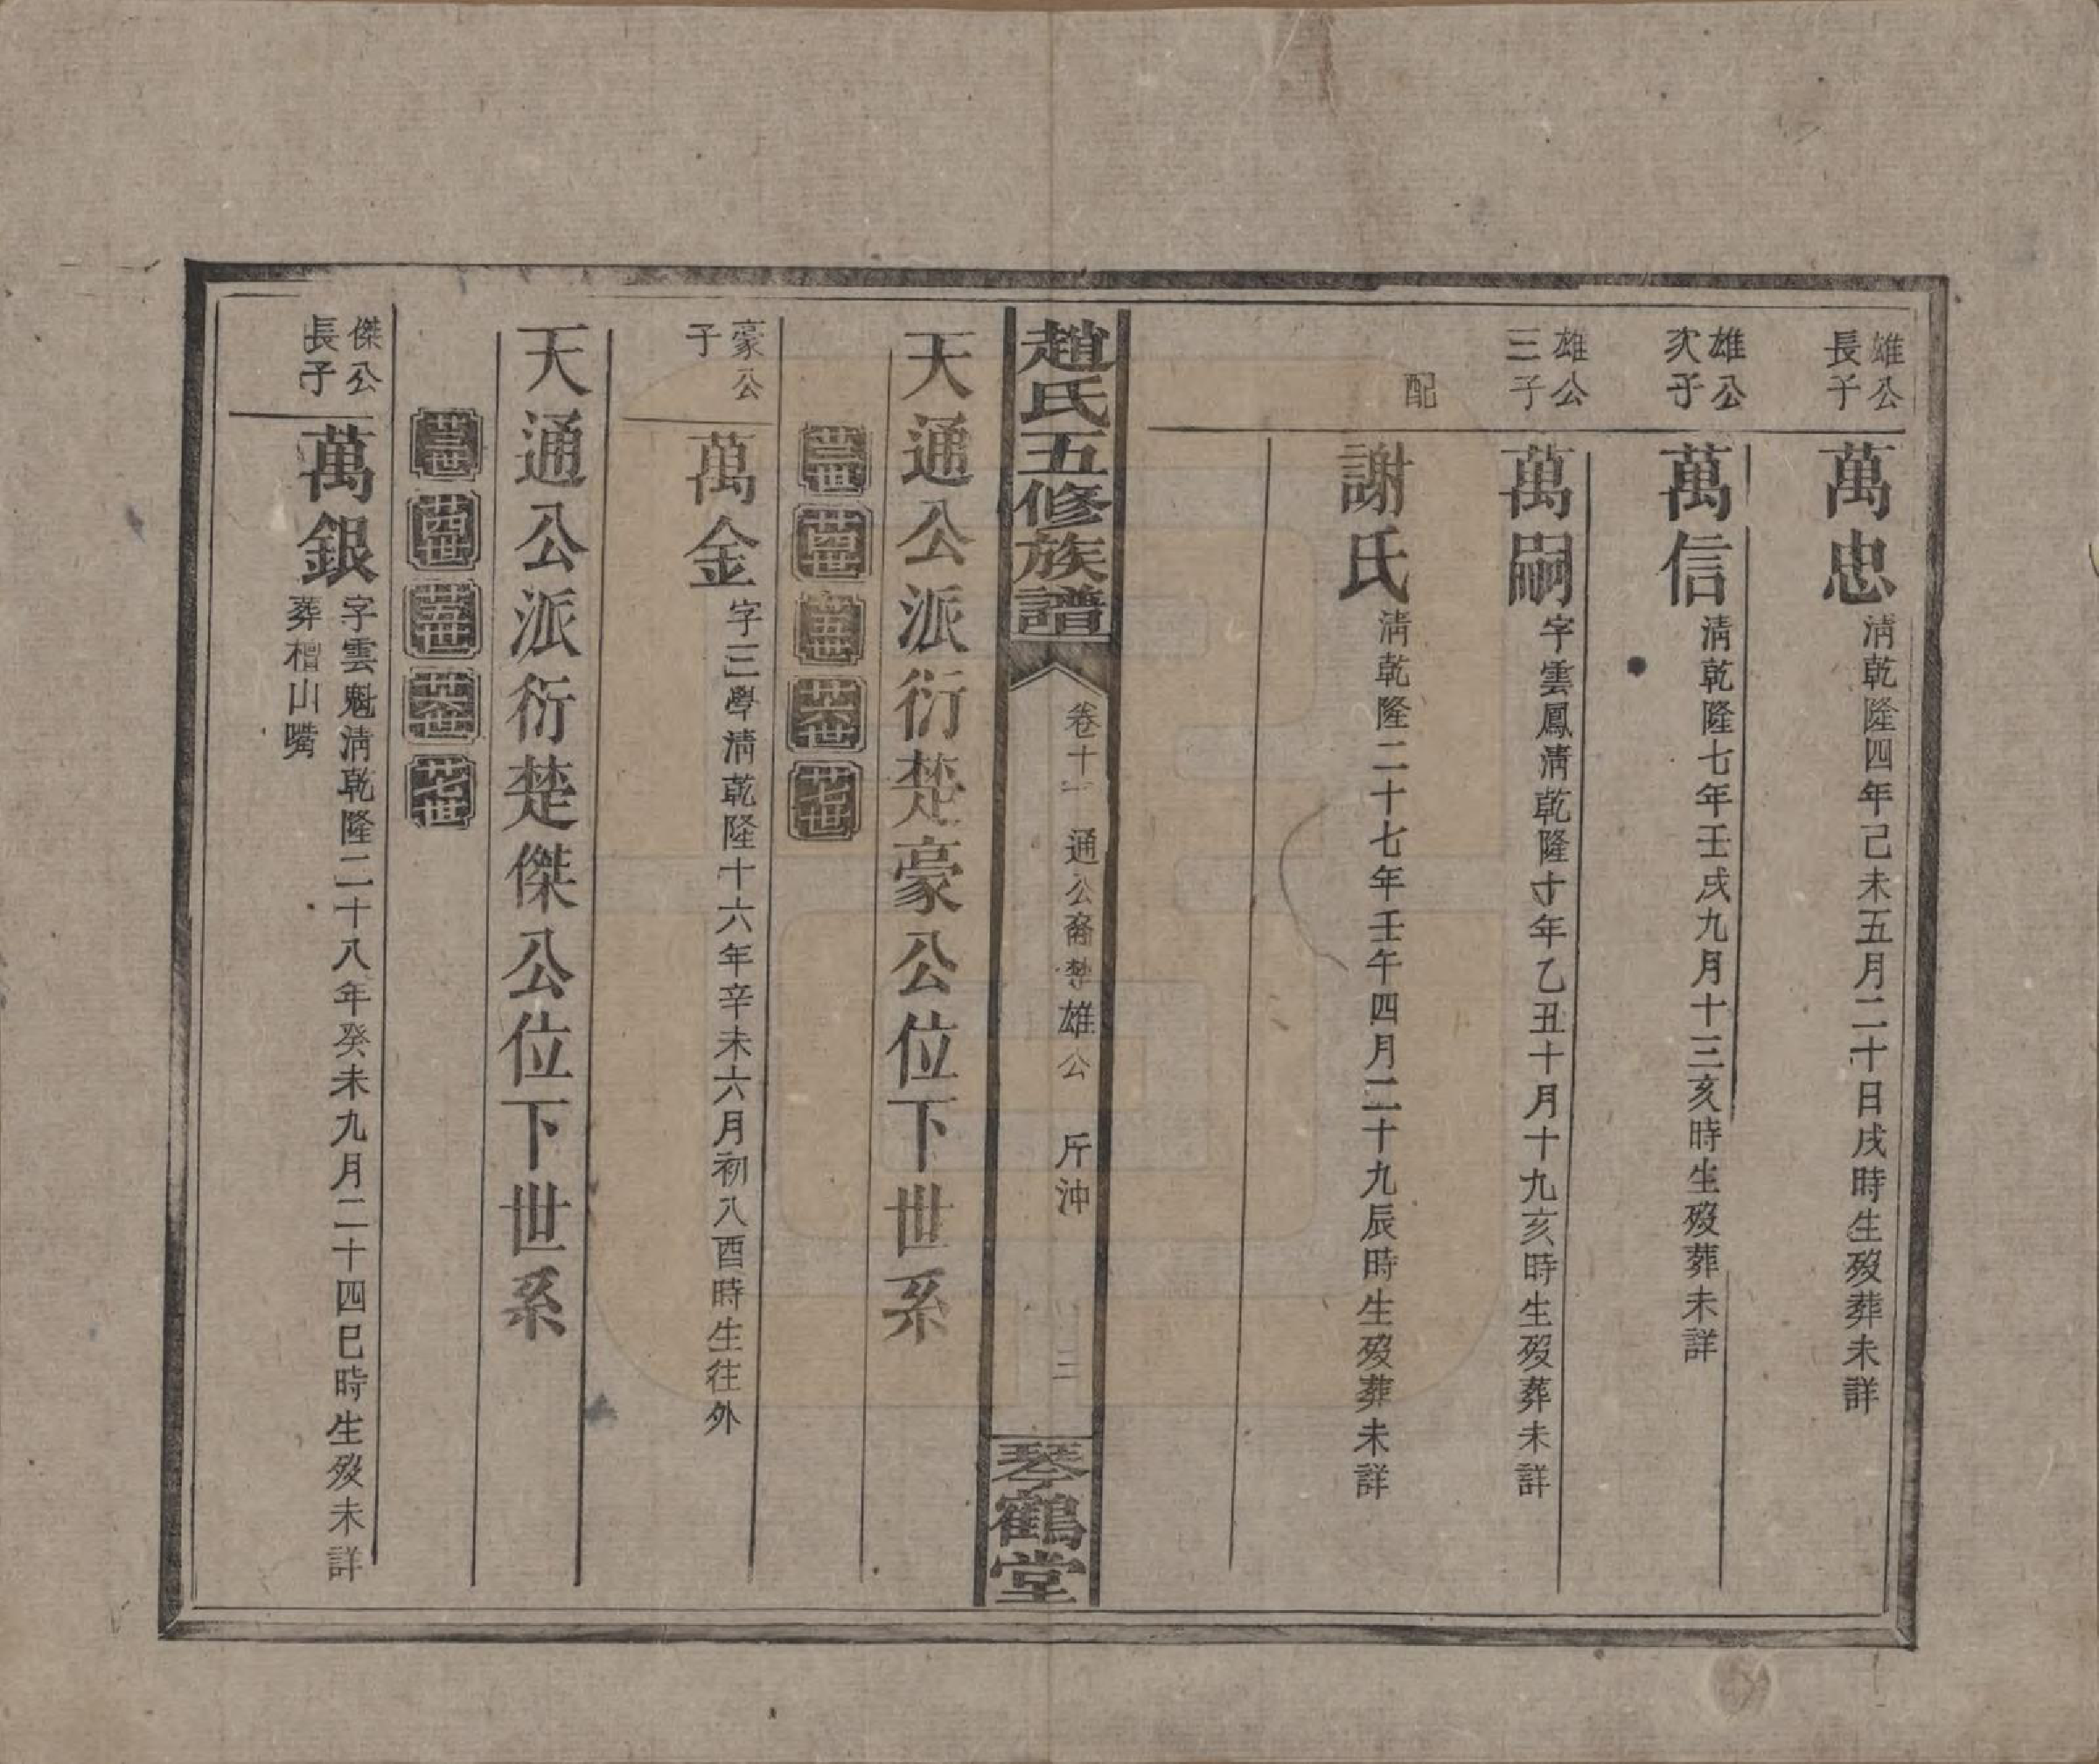 雄公
長子
萬忠
清乾隆四年己未五月二十日戌時生歿葬未詳
雄公
次子
萬信
清乾隆七年壬戌九月十三亥時生歿葬未詳
雄公
三子
萬嗣
字雲鳳清乾隆十年乙丑十月十九亥時生歿葬未詳
配
謝氏
清乾隆二十七年壬午四月二十九辰時生歿葬未詳
趙氏五修族譜
卷十一 通公裔楚雄公 斤沖 三
琴鶴堂
天通公派衍楚豪公位下世系
廿三世 廿四世 廿五世 廿六世 廿七世
豪公
子
萬金
字三學清乾隆十六年辛未六月初八酉時生往外
天通公派衍楚傑公位下世系
廿三世 廿四世 廿五世 廿六世 廿七世
傑公
長子
萬銀
字雲魁清乾隆二十八年癸未九月二十四巳時生歿未詳
葬槽山嘴